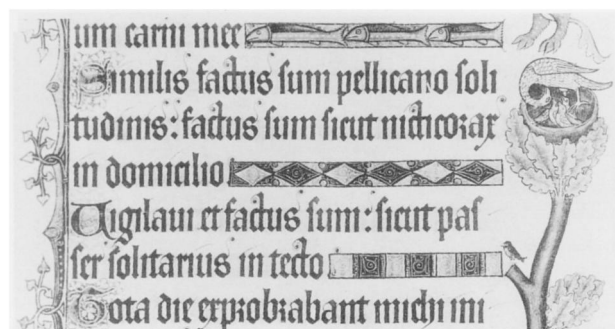 um carni mee
Similis factus sum pellicano soli
tudinis: factus sum sicut nicticorax
in domicilio
Uigilaui et factus sum: sicut pas
ser solitarius in tecto
Tota die exprobrabant michi ini